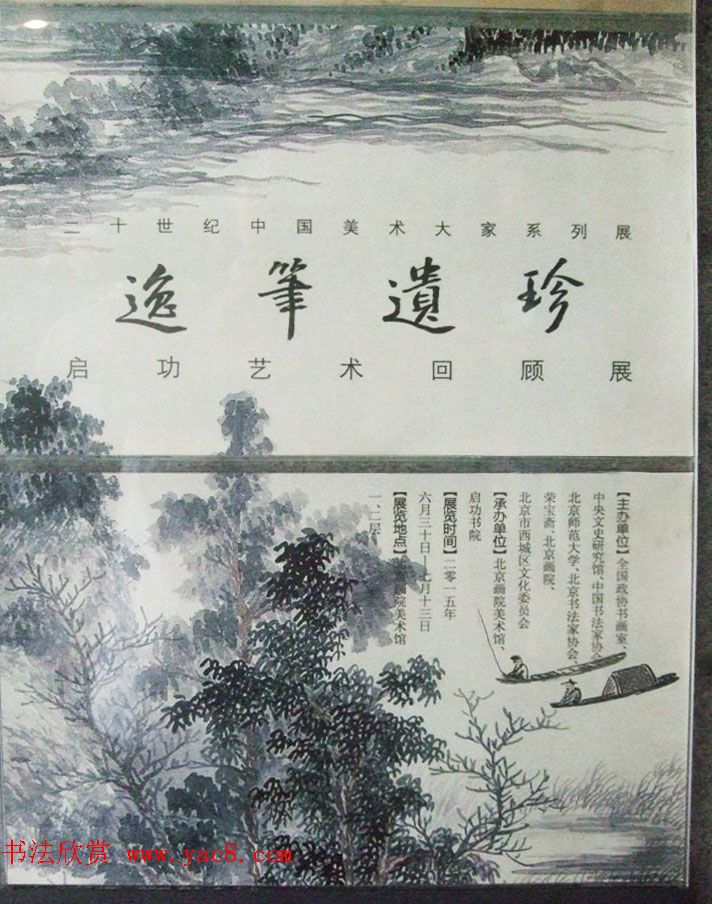 二十世纪中国美术大家系列展
逸筆遺珍
启功艺术回顾展
【主办单位】全国政协书画室、
中央文史研究馆、中国书法家协会、
北京师范大学、北京书法家协会、
荣宝斋、北京画院、
北京市西城区文化委员会
【承办单位】北京画院美术馆、
启功书院
【展览时间】二零一五年
六月三十日—七月十三日
【展览地点】北京画院美术馆
一、二层
书法欣赏 www.yac8.com